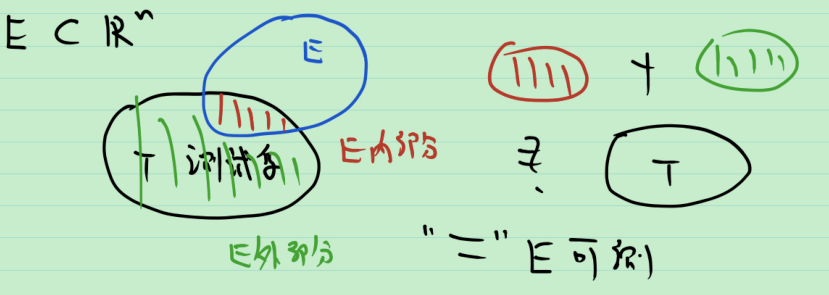 E ⊂ ℝⁿ
E
T 测试集
E内部分
E外部分
+
≥?
T
"=" E可测